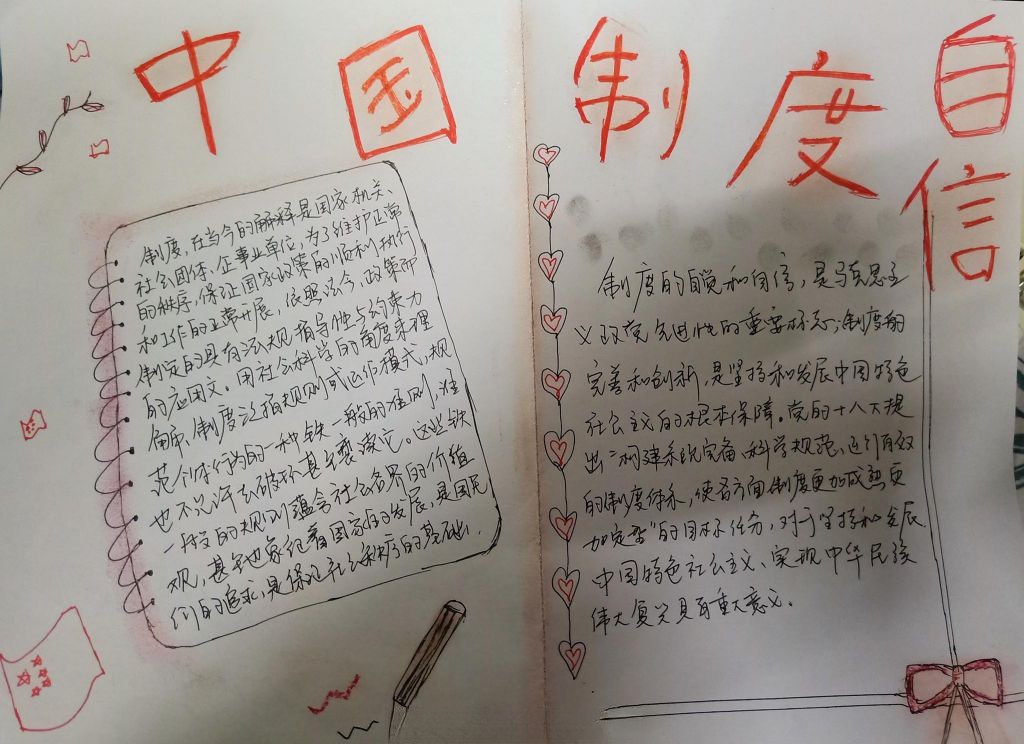 中国制度自信
制度,在当今的解释是国家机关、
社会团体、企事业单位,为了维护正常
的秩序,保证国家政策的顺利执行
和工作的正常开展,依照法令、政策而
制定的具有法规指导性与约束力
的应用文。用社会科学的角度来理
解,制度泛指规则或运作模式,规
范个体行为的一种铁一般的准则,谁
也不允许去破坏甚至要读它。这些铁
一般的规则蕴含社会各界的价值
观,甚至也象征着国家的发展,是国民
们的追求,是保证社会秩序的基础。
制度的自觉和自信,是马克思主
义政党先进性的重要标志;制度的
完善和创新,是坚持和发展中国特色
社会主义的根本保障。党的十八大提
出“构建系统完备、科学规范、运行有效
的制度体系,使各方面制度更加成熟更
加定型”的目标任务,对于坚持和发展
中国特色社会主义、实现中华民族
伟大复兴具有重大意义。